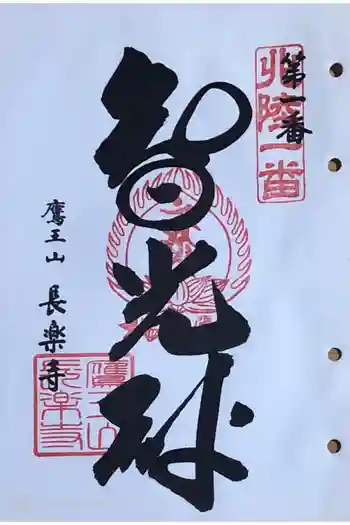 第一番
北陸一番
智光殊
鷹王山 長楽寺
鷹王山
長楽寺